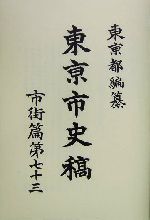 東京都編纂
東京市史稿
市街篇第七十三